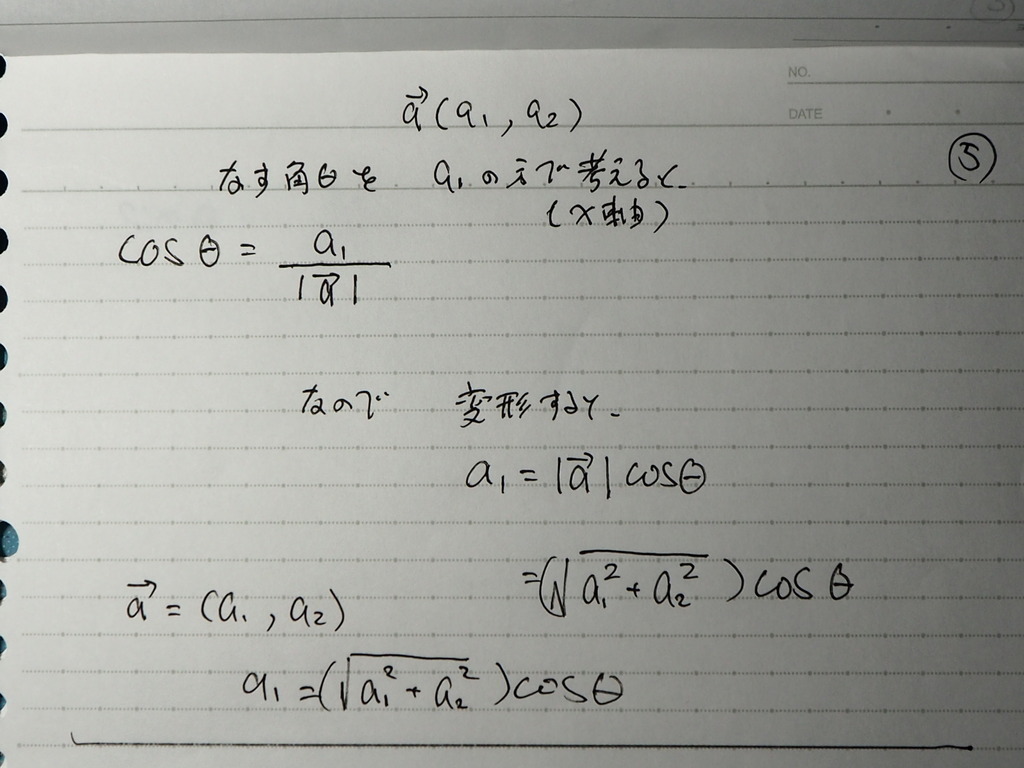 NO.
DATE
$\vec{a}(a_1, a_2)$
⑤
なす角θを a₁の方で考えると、
(x軸)
$\cos\theta = \frac{a_1}{|\vec{a}|}$
なので 変形すると、
$a_1 = |\vec{a}|\cos\theta$
$= (\sqrt{a_1^2 + a_2^2})\cos\theta$
$\vec{a} = (a_1, a_2)$
$a_1 = (\sqrt{a_1^2 + a_2^2})\cos\theta$